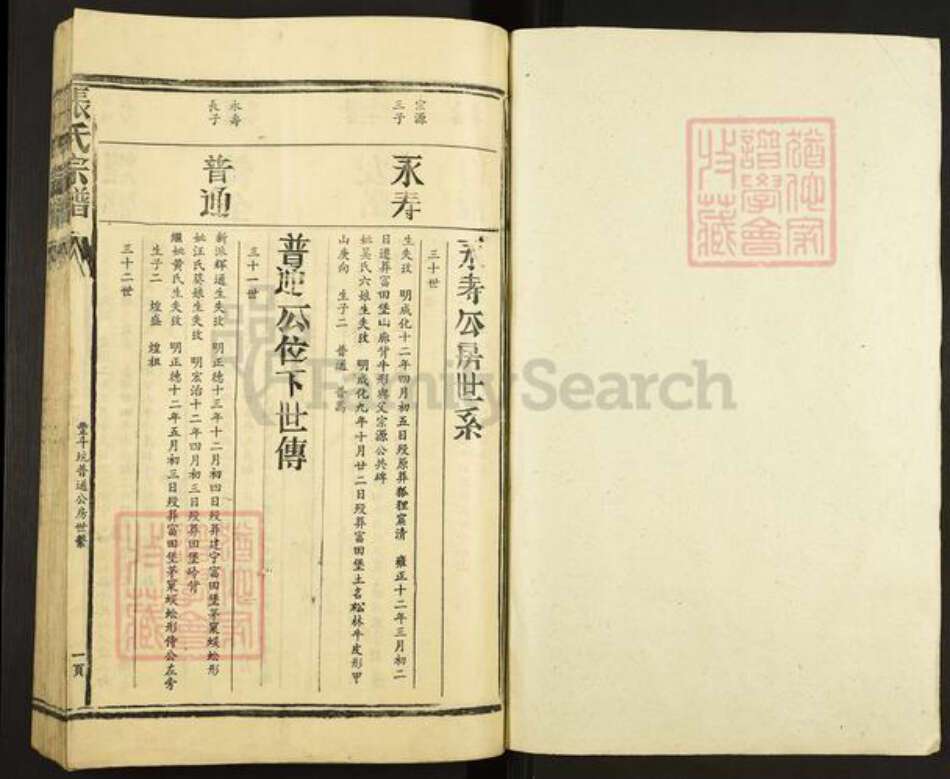 宗源
三子
永壽
長子
永寿
普通
永寿公房世系
三十世
生失攷　明成化十二年四月初五日歿原葬狐狸窩清　雍正十二年三月初二
日遷葬富田堡山廟背牛形與父宗源公共碑
妣吴氏六娘生失攷　明成化九年十月廿二日歿葬富田堡土名松林牛皮形甲
山庚向　生子二　普通　普萬
普通公位下世傳
三十一世
新派輝通生失攷　明正德十三年十二月初四日歿葬建宁富田堡茅窠蜈蚣形
妣汪氏葵娘生失攷　明宏治十二年四月初三日歿葬田堡岭背
繼妣黄氏生失攷　明正德十二年五月初三日歿葬富田堡茅窠蜈蚣形侍公左旁
生子二　煌盛　煌祖
三十二世
張氏宗譜
普通公房世繫
一頁
FamilySearch